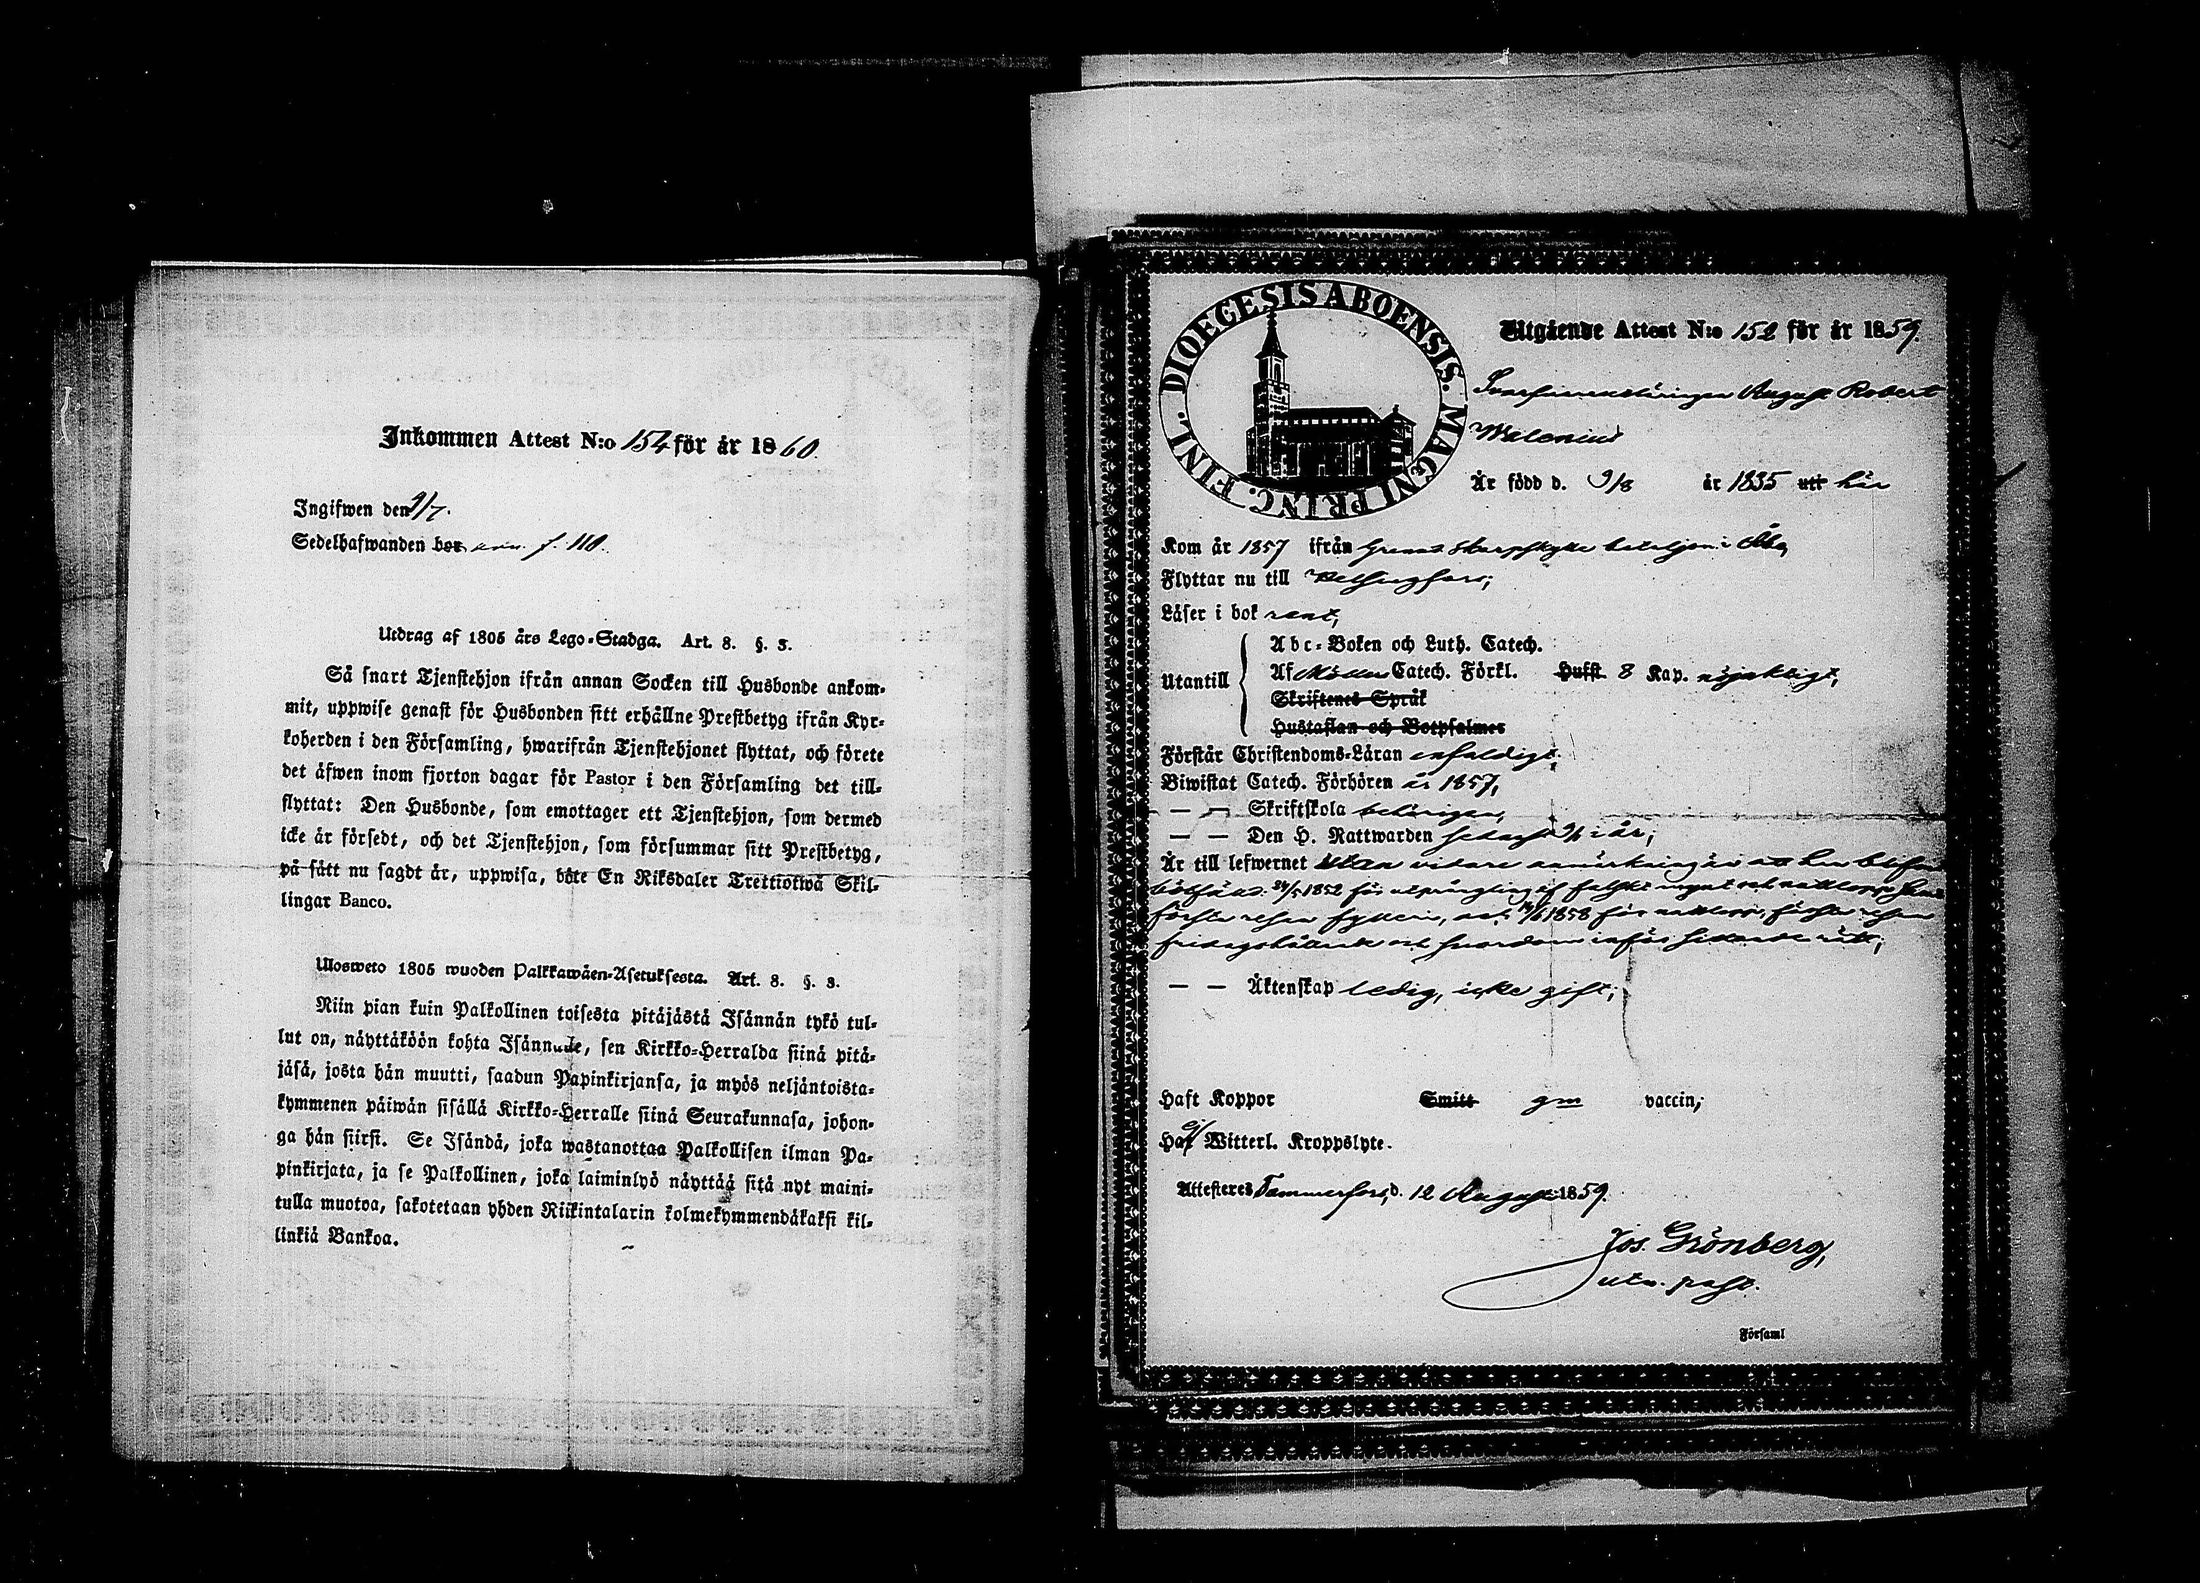 Inkommen Attest N:o 154 för år 1860.
Ingifwen den 9/7.
Sedelhafwanden bor f. 110.
Utdrag af 1805 års Lego-Stadga. Art. 8. §. 3.
Så snart Tjenstehjon ifrån annan Socken till Husbonde ankom-
mit, uppwise genast för Husbonden sitt erhållne Prestbetyg ifrån Kyr-
koherden i den Församling, hwarifrån Tjenstehjonet flyttat, och förete
det äfwen inom fjorton dagar för Pastor i den Församling det till-
flyttat: Den Husbonde, som emottager ett Tjenstehjon, som dermed
icke är försedt, och det Tjenstehjon, som försummar sitt Prestbetyg,
på sätt nu sagdt är, uppwisa, böte En Riksdaler Trettiotwå Skil-
lingar Banco.
Ulosweto 1805 wuoden Palkkawäen-Asetuksesta. Art. 8. §. 3.
Niin pian kuin Palkollinen toisesta pitäjästä Isännän tykö tul-
lut on, näyttäköön kohta Isännälle, sen Kirkko-Herralda siinä pitä-
jäsä, josta hän muutti, saadun Papinkirjansa, ja myös neljäntoista-
kymmenen päiwän sisällä Kirkko-Herralle siinä Seurakunnasa, johon-
ga hän siirsi. Se Isändä, joka wastanottaa Palkollisen ilman Pa-
pinkirjata, ja se Palkollinen, joka laiminlyö näyttää sitä nyt maini-
tulla muotoa, sakotetaan yhden Riikintalarin kolmekymmendäkaksi kil-
linkiä Bankoa.
DIOECESIS ABOENSIS. MAGNI PRINC. FINL.
Utgående Attest N:o 152 för år 1859.
August Robert
Walenius
Är född d. 9/8 år 1835 uti här
Kom år 1857 ifrån Grenad. Skarpskytte bataljon i Åbo,
Flyttar nu till Helsingfors;
Läser i bok rent,
Utantill
Abc-Boken och Luth. Catech.
Af Möllers Catech. Förkl. Hufst. 8 Kap. nöjaktigt,
Skriftenes Språk
Hustaflan och Botpsalmer
Förstår Christendoms-Läran enfaldigt;
Biwistat Catech. Förhören år 1857,
— — Skriftskola behörigen,
— — Den H. Nattwarden i år;
Är till lefwernet utan vidare anmärkning än att han blifvit
24/5 1852 för utprångling af falskt mynt och
första resan fylleri, och 14/6 1858 för första resan
och svordom inför sittande rätt;
— — Äktenskap ledig, icke gift;
Haft Koppor Smitt gm vaccin,
Haf ej Witterl. Kroppslyte.
Attesteres Tammerfors, d. 12 August 1859.
Jos. Grönberg,
past.
Församl